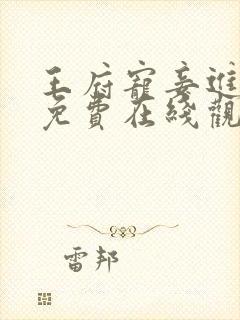 王府寵妾進
免費在綫觀
雷邦